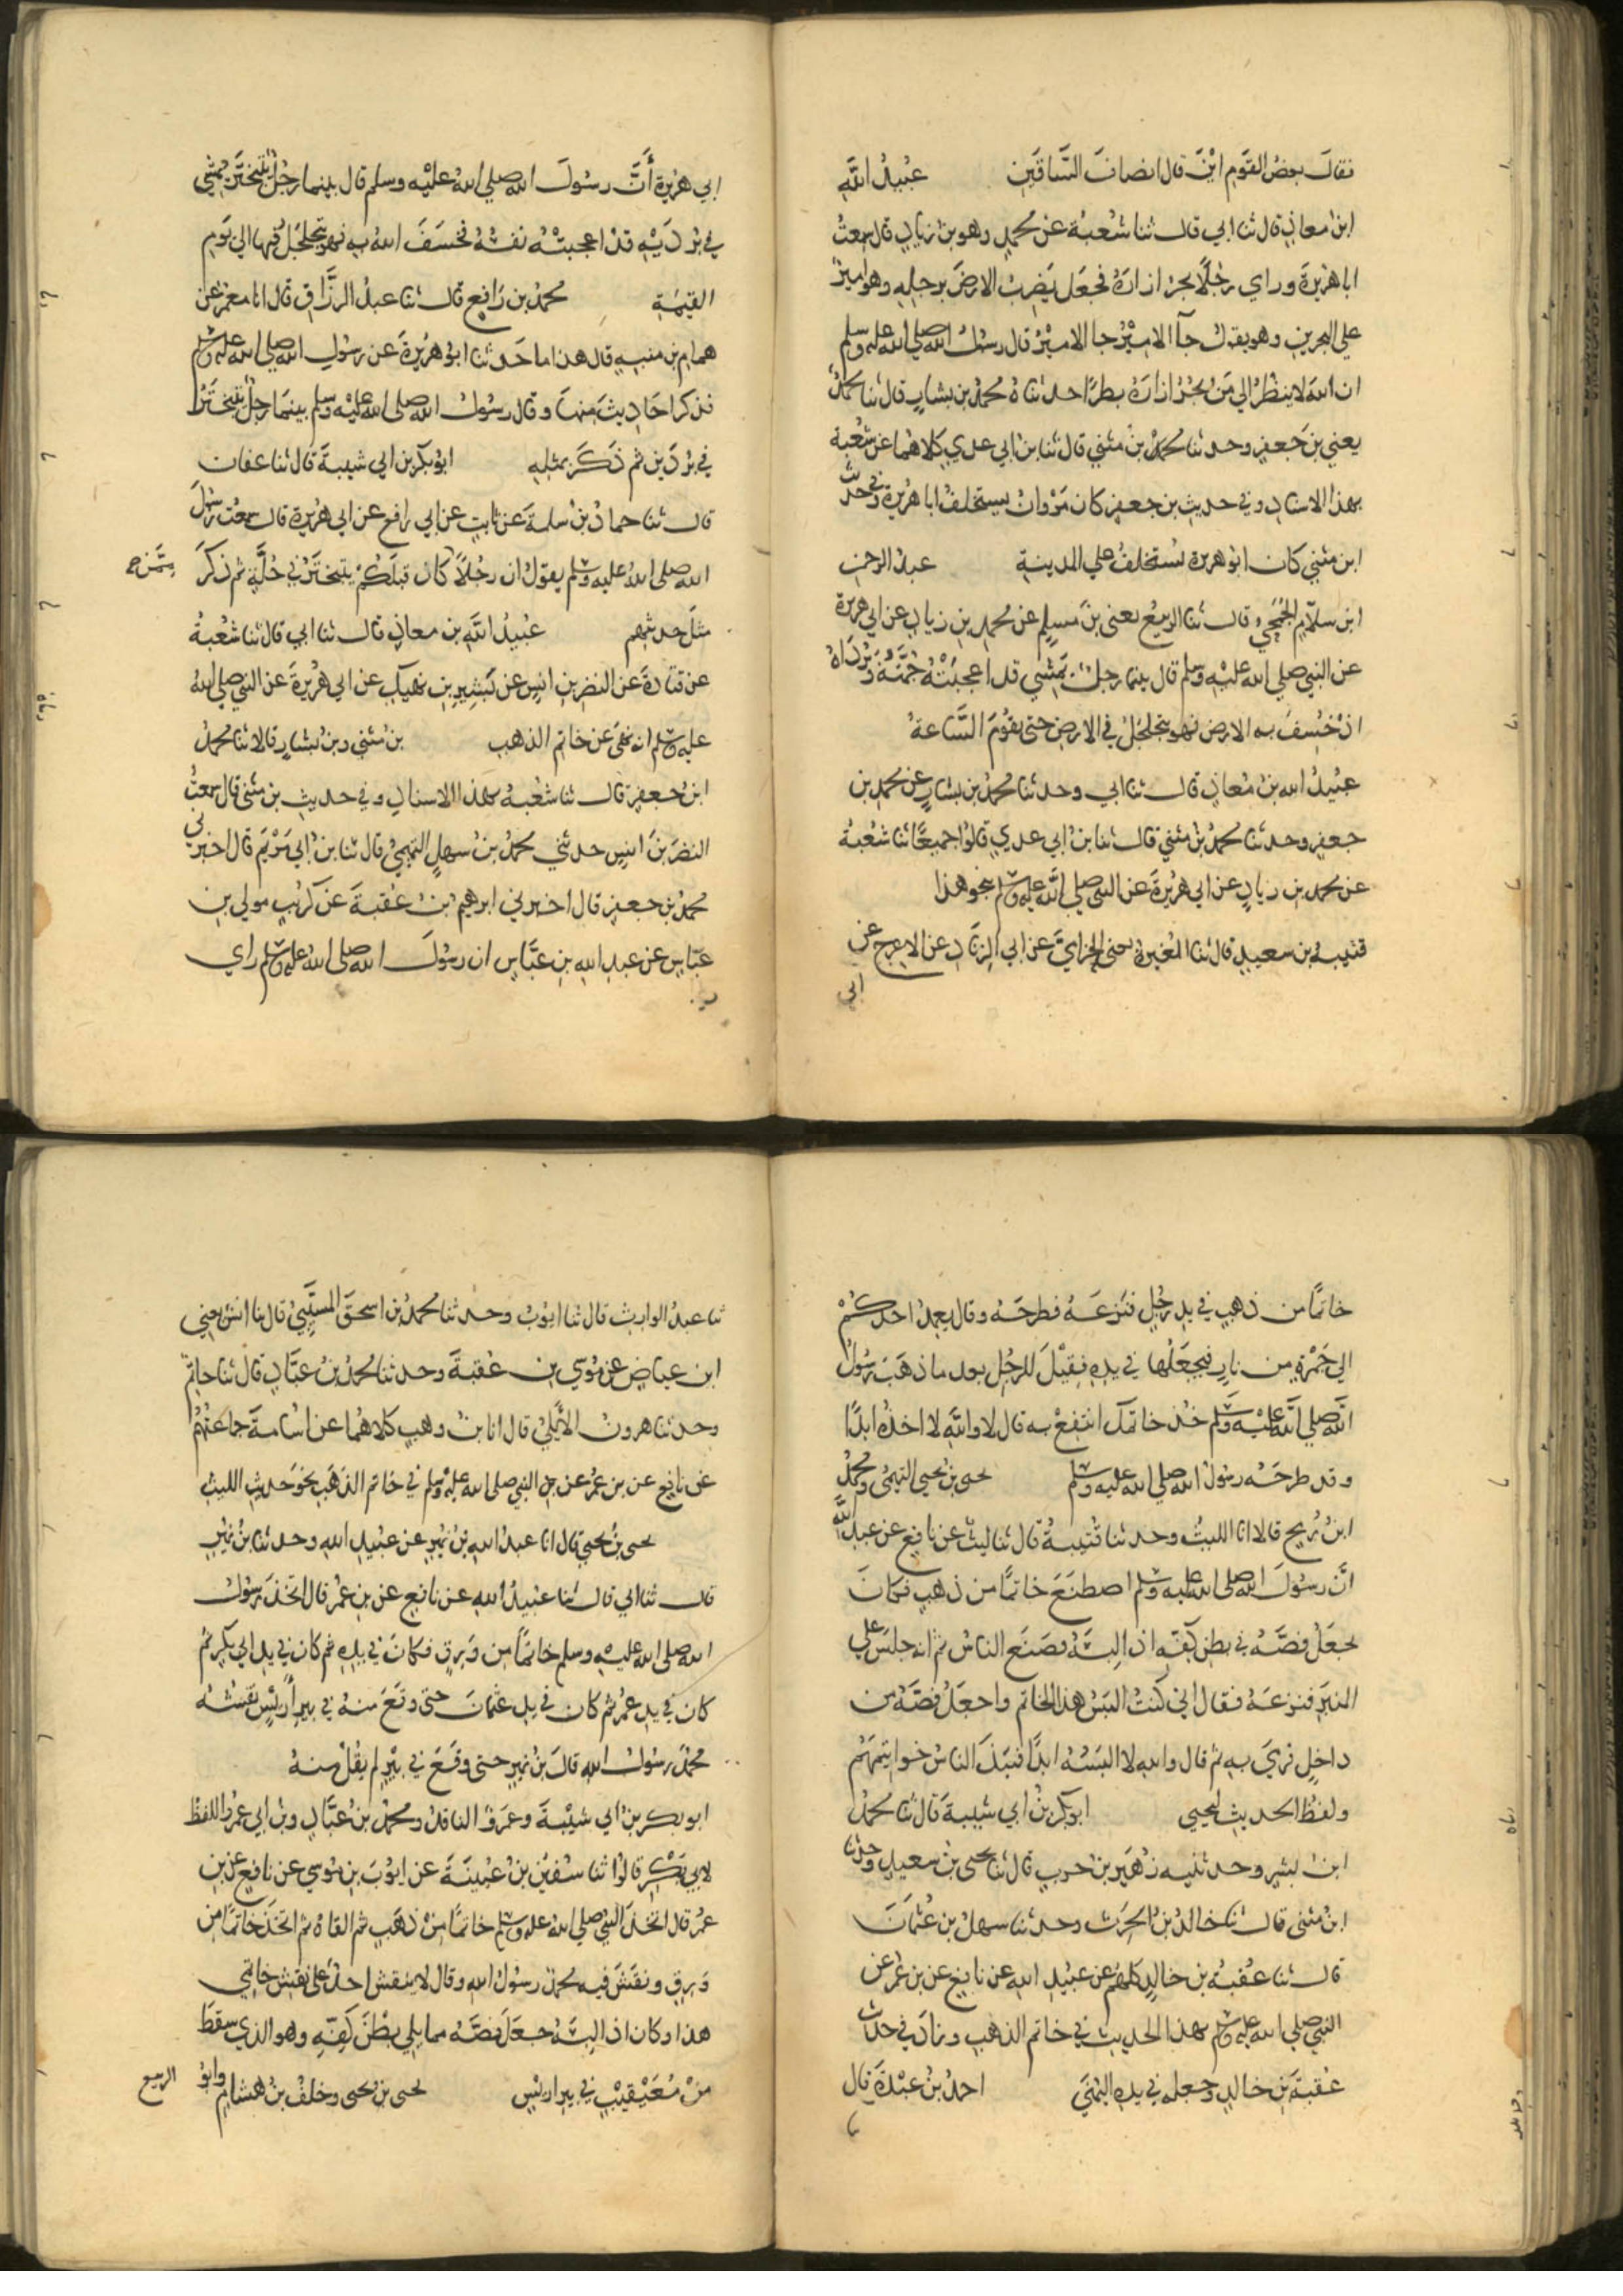 فقال بعض القوم اين قال انصاف الساقين عبيد الله
ابن معاذ قال ثنا ابي قال ثنا شعبة عن محمد وهو بن زياد قال سمعت
ابا هريرة وراي رجلا يجر ازاره فجعل يضرب الارض برجله وهو امير
علي البحرين وهو يقول جآ الامير جا الامير قال رسول الله صلي الله عليه وسلم
ان الله لا ينظر الي من يجر ازاره بطرا حدثناه محمد بن بشار قال ثنا محمد
يعني بن جعفر وحدثنا محمد بن مثني قال ثنا بن ابي عدي كلاهما عن شعبة
بهذا الاسناد وفي حديث بن جعفر كان مروان يستخلف ابا هريرة وفي حديث
ابن مثني كان ابو هريرة يستخلف علي المدينة عبد الرحمن
ابن سلام الجمحي قال ثنا الربيع يعني بن مسلم عن محمد بن زياد عن ابي هريرة
عن النبي صلي الله عليه وسلم قال بينما رجل يمشي قد اعجبته جمته وبرداه
اذ خسف به الارض فهو يتجلجل في الارض حتى يقوم الساعة
عبيد الله بن معاذ قال ثنا ابي وحدثنا محمد بن بشار عن محمد بن
جعفر وحدثنا محمد بن مثني قال ثنا بن ابي عدي قالوا جميعا ثنا شعبة
عن محمد بن زياد عن ابي هريرة عن النبي صلي الله عليه وسلم بنحو هذا
قتيبة بن سعيد قال ثنا المغيرة يعني الحزامي عن ابي الزناد عن الاعرج عن
ابي
ابي هريرة أن رسول الله صلي الله عليه وسلم قال بينما رجل يتبختر يمشي
في بردية قد اعجبته نفسه فخسف الله به فهو يتجلجل فيها الي يوم
القيمة محمد بن رافع قال ثنا عبد الرزاق قال انا معمر عن
همام بن منبه قال هذا ما حدثنا ابو هريرة عن رسول الله صلي الله عليه وسلم
فذكر احاديث منها وقال رسول الله صلي الله عليه وسلم بينما رجل يتبختر
في بردين ثم ذكر بمثله ابو بكر بن ابي شيبة قال ثنا عفان
قال ثنا حماد بن سلمة عن ثابت عن ابي رافع عن ابي هريرة قال سمعت رسول
الله صلي الله عليه وسلم يقول ان رجلا كان قبلكم يتبختر في حلة ثم ذكر
مثل حديثهم عبيد الله بن معاذ قال ثنا ابي قال ثنا شعبة
عن قتادة عن النضر بن انس عن بشير بن نهيك عن ابي هريرة عن النبي صلي الله
عليه وسلم انه نهى عن خاتم الذهب بن مثني وبن بشار قالا ثنا محمد
ابن جعفر قال ثنا شعبة بهذا الاسناد وفي حديث بن مثني قال سمعت
النضر بن انس حدثني محمد بن سهل التميمي قال ثنا بن ابي مريم قال اخبرني
محمد بن جعفر قال اخبرني ابرهيم بن عقبة عن كريب مولي بن
عباس عن عبد الله بن عباس ان رسول الله صلي الله عليه وسلم راي
خاتما من ذهب في يد رجل فنزعه فطرحه وقال يعمد احدكم
الي جمرة من نار فيجعلها في يده فقيل للرجل بعد ما ذهب رسول
الله صلي الله عليه وسلم خذ خاتمك انتفع به قال لا والله لا اخذه ابدا
وقد طرحه رسول الله صلي الله عليه وسلم يحيى بن يحيى التيمي ومحمد
ابن رمح قالا انا الليث وحدثنا قتيبة قال ثنا ليث عن نافع عن عبد الله
ان رسول الله صلي الله عليه وسلم اصطنع خاتما من ذهب فكان
يجعل فصه في بطن كفه اذا لبسه فصنع الناس ثم انه جلس علي
المنبر فنزعه فقال اني كنت البس هذا الخاتم واجعل فصه من
داخل فرمي به ثم قال والله لا البسه ابدا فنبذ الناس خواتيمهم
ولفظ الحديث ليحيى ابو بكر بن ابي شيبة قال ثنا محمد
ابن بشر وحدثنيه زهير بن حرب قال ثنا يحيى بن سعيد وحدثنا
ابن مثني قال ثنا خالد بن الحرث وحدثنا سهل بن عثمان
قال ثنا عقبة بن خالد كلهم عن عبيد الله عن نافع عن بن عمر عن
النبي صلي الله عليه وسلم بهذا الحديث في خاتم الذهب وزاد في حديث
عقبة بن خالد وجعله في يده اليمني احمد بن عبدة قال
ثنا عبد الوارث قال ثنا ايوب وحدثنا محمد بن اسحق المسيبي قال نا انس يعني
ابن عياض عن موسي بن عقبة وحدثنا محمد بن عباد قال ثنا حاتم
وحدثنا هرون الأيلي قال انا بن وهب كلاهما عن اسامة جماعتهم
عن نافع عن بن عمر عن النبي صلي الله عليه وسلم في خاتم الذهب نحو حديث الليث
يحيى بن يحيى قال انا عبد الله بن نمير عن عبيد الله وحدثنا بن نمير
قال ثنا ابي قال ثنا عبيد الله عن نافع عن بن عمر قال اتخذ رسول
الله صلي الله عليه وسلم خاتما من ورق فكان في يده ثم كان في يد ابي بكر ثم
كان في يد عمر ثم كان في يد عثمان حتى وقع منه في بير أريس نقشه
محمد رسول الله قال بن نمير حتى وقع في بير لم يقل منه
ابو بكر بن ابي شيبة وعمرو الناقد ومحمد بن عباد وبن ابي عمر واللفظ
لابي بكر قالوا ثنا سفين بن عيينة عن ايوب بن موسي عن نافع عن بن
عمر قال اتخذ النبي صلي الله عليه وسلم خاتما من ذهب ثم القاه ثم اتخذ خاتما من
ورق ونقش فيه محمد رسول الله وقال لا ينقش احد على نقش خاتمي
هذا وكان اذا لبسه جعل فصه مما يلي بطن كفه وهو الذي سقط
من معيقيب في بير اريس يحيى بن يحيى وخلف بن هشام وابو الربيع